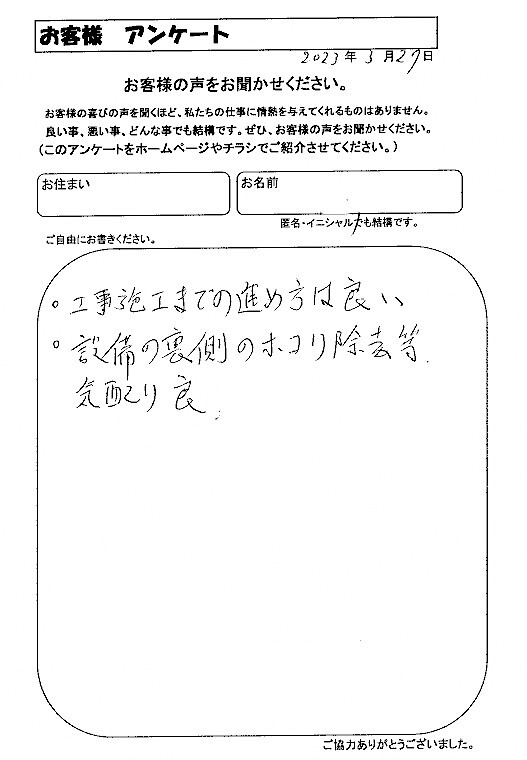 お客様 アンケート
2023年3月27日
お客様の声をお聞かせください。
お客様の喜びの声を聞くほど、私たちの仕事に情熱を与えてくれるものはありません。
良い事、悪い事、どんな事でも結構です。ぜひ、お客様の声をお聞かせください。
(このアンケートをホームページやチラシでご紹介させてください。)
お住まい お名前
匿名・イニシャルでも結構です。
ご自由にお書きください。
。工事施工までの進め方は良い
。設備の裏側のホコリ除去等
気配り良
ご協力ありがとうございました。